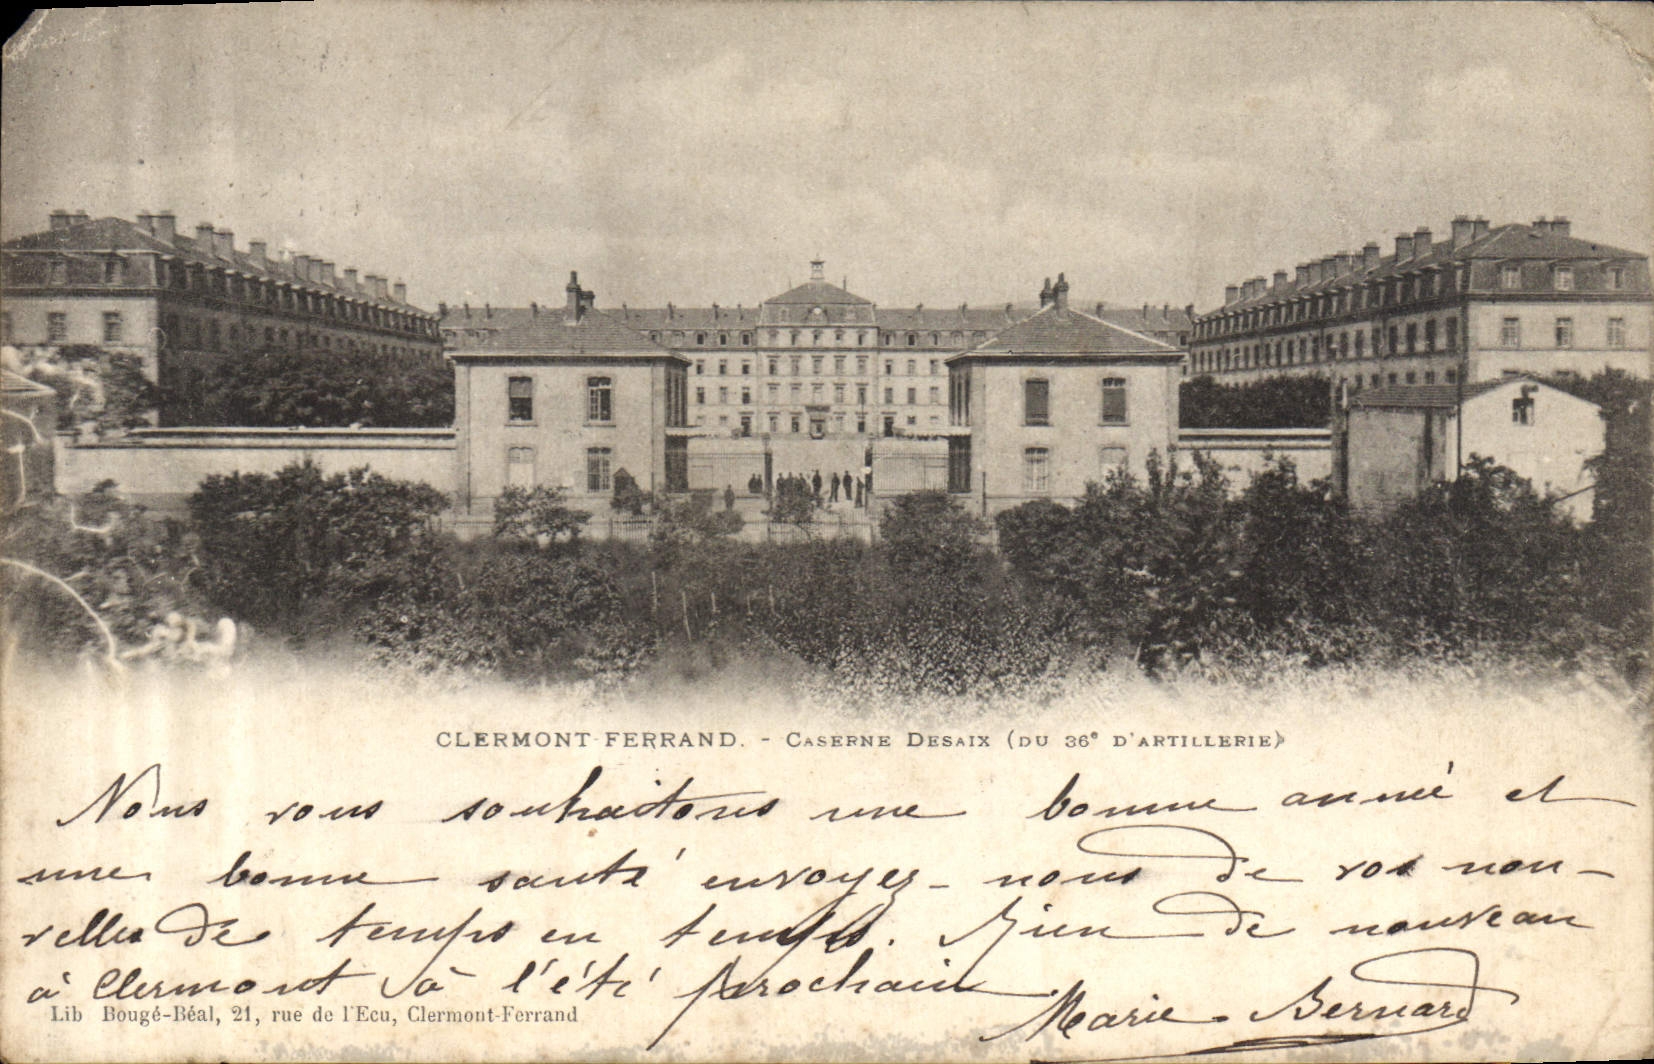 CLERMONT-FERRAND. - CASERNE DESAIX (DU 36e D'ARTILLERIE)
Nous vous souhaitons une bonne année et
une bonne santé envoyez-nous de vos nou-
velles de temps en temps. Rien de nouveau
à Clermont à l'été prochain
Marie Bernard
Lib Bougé-Béal, 21, rue de l'Ecu, Clermont-Ferrand